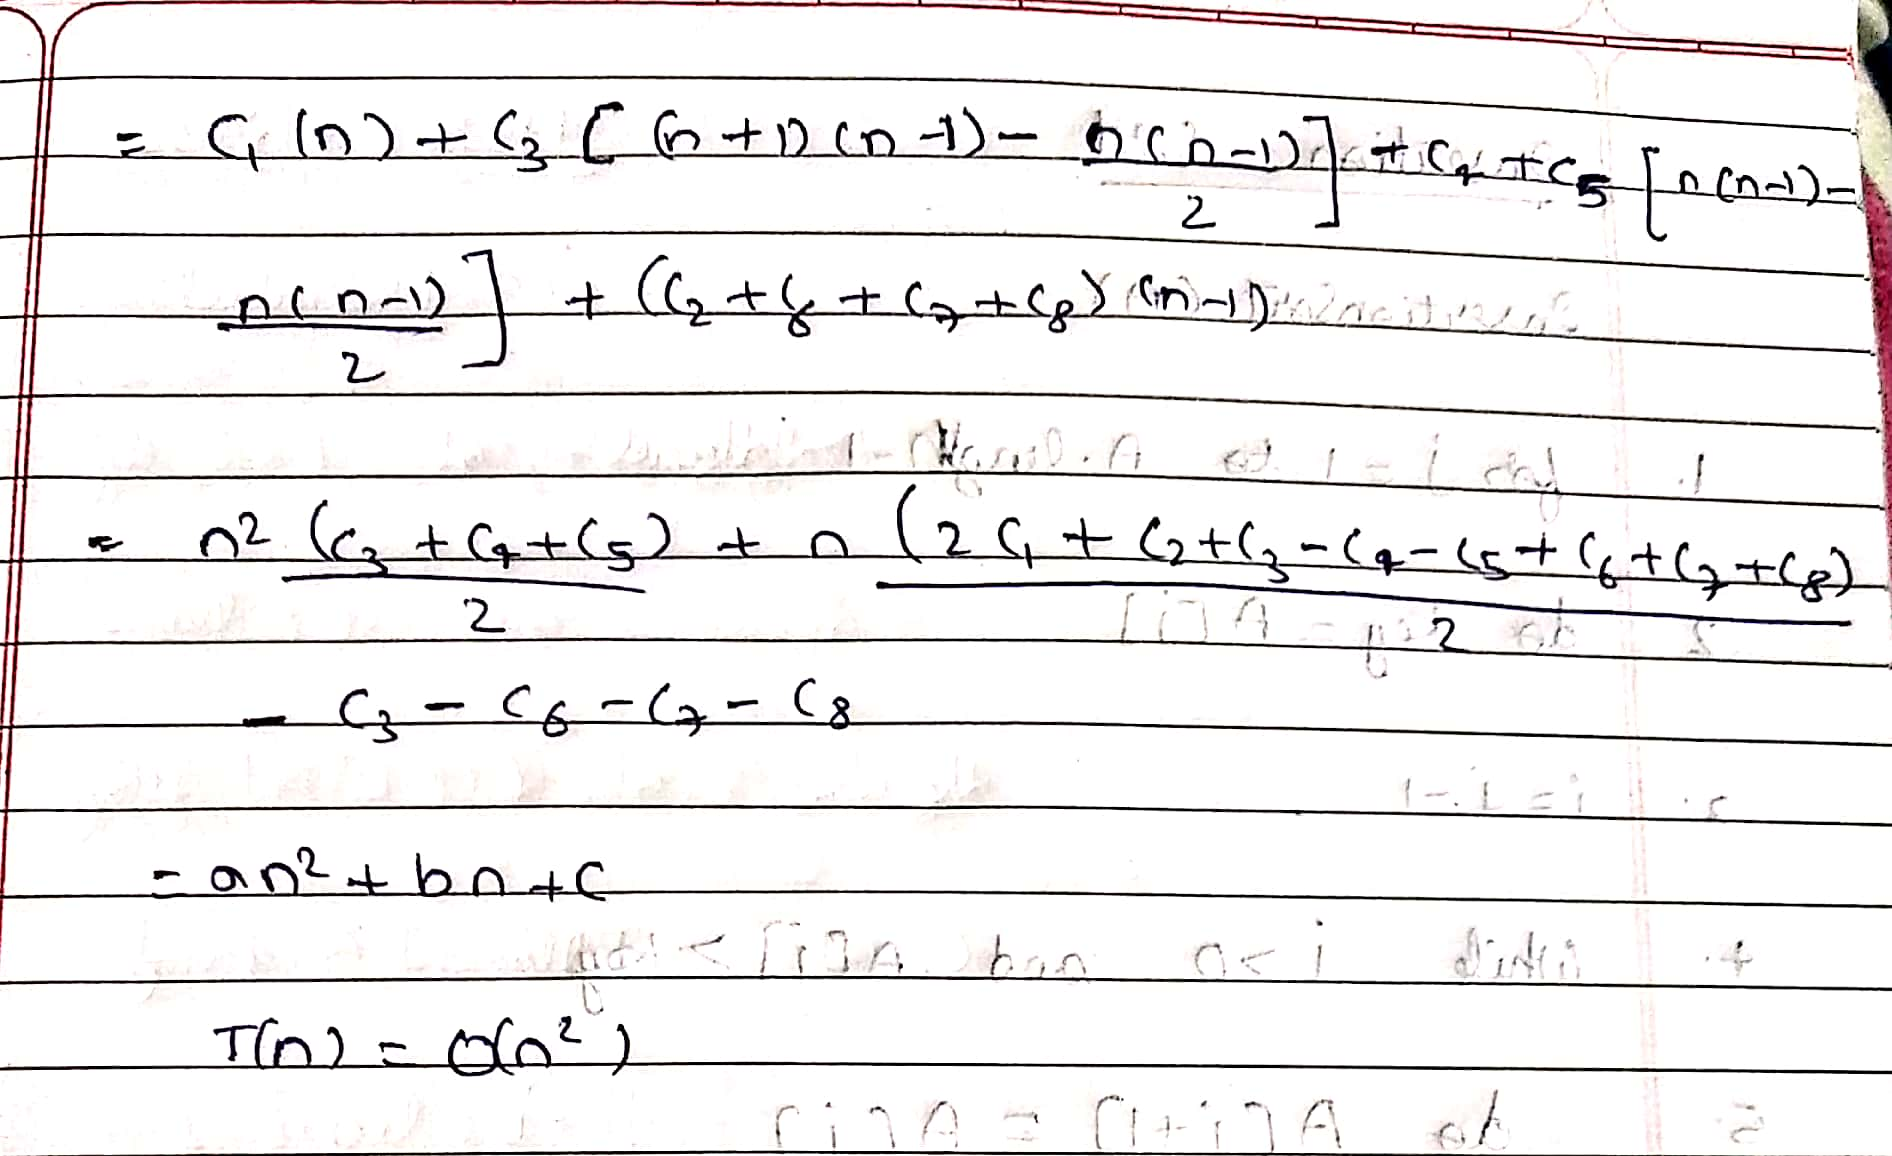 = C₁ (n) + C₃ [ (n+1) (n-1) - n(n-1)/2 ] + C₄ + C₅ [ n(n-1) -
n(n-1)/2 ] + (C₂ + C₆ + C₇ + C₈) (n-1)
= n² (C₃ + C₄ + C₅)/2 + n (2C₁ + C₂ + C₃ - C₄ - C₅ + C₆ + C₇ + C₈)/2
- C₃ - C₆ - C₇ - C₈
= an² + bn + C
T(n) = O(n²)